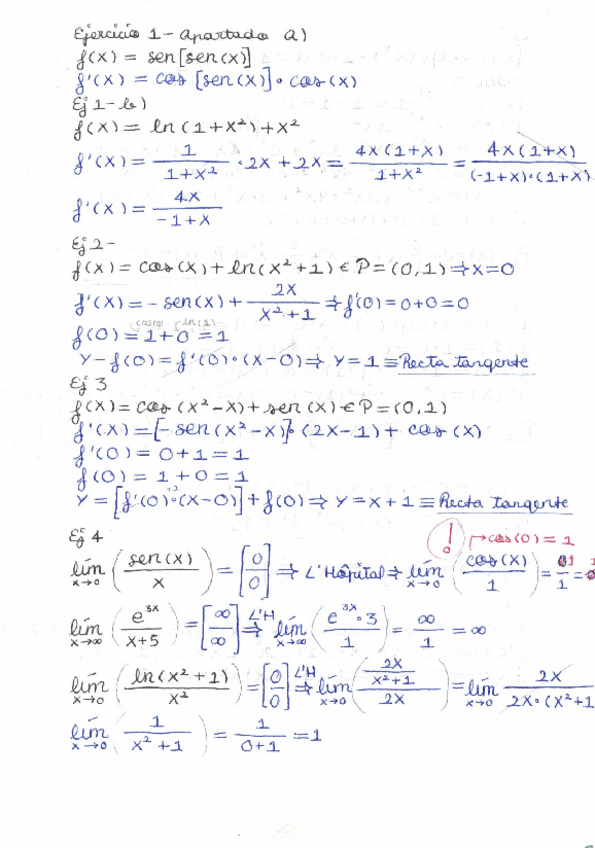 Ejercicio 1 - Apartado A)
f(x) = sen[sen(x)]
f'(x) = cos [sen(x)] · cos(x)
Ej 1 - b)
f(x) = ln(1+x²)+x²
f'(x) = 1/(1+x²) · 2x + 2x = 4x(1+x)/(1+x²) = 4x(1+x)/((-1+x)·(1+x))
f'(x) = 4x/(-1+x)
Ej 2 -
f(x) = cos(x) + ln(x²+1) ∈ P = (0,1) ⇒ x=0
f'(x) = - sen(x) + 2x/(x²+1) ⇒ f'(0) = 0+0 = 0
cos(0) ln(1)
f(0) = 1+0 = 1
Y - f(0) = f'(0)·(x-0) ⇒ Y = 1 ≡ Recta tangente
Ej 3
f(x) = cos(x²-x) + sen(x) ∈ P = (0,1)
f'(x) = [- sen(x²-x)]·(2x-1) + cos(x)
f'(0) = 0+1 = 1
f(0) = 1+0 = 1
Y = [f'(0)·(x-0)] + f(0) ⇒ Y = x+1 ≡ Recta tangente
Ej 4
! → cos(0) = 1
lím x→0 (sen(x)/x) = [0/0] ⇒ L'Hôpital ⇒ lím x→0 (cos(x)/1) =
lím x→∞ (e^3x/(x+5)) = [∞/∞] L'H ⇒ lím x→∞ (e^3x·3/1) = ∞/1 = ∞
lím x→0 (ln(x²+1)/x²) = [0/0] L'H ⇒ lím x→0 ((2x/(x²+1))/2x) = lím x→0 2x/(2x·(x²+1
lím x→0 (1/(x²+1)) = 1/(0+1) = 1